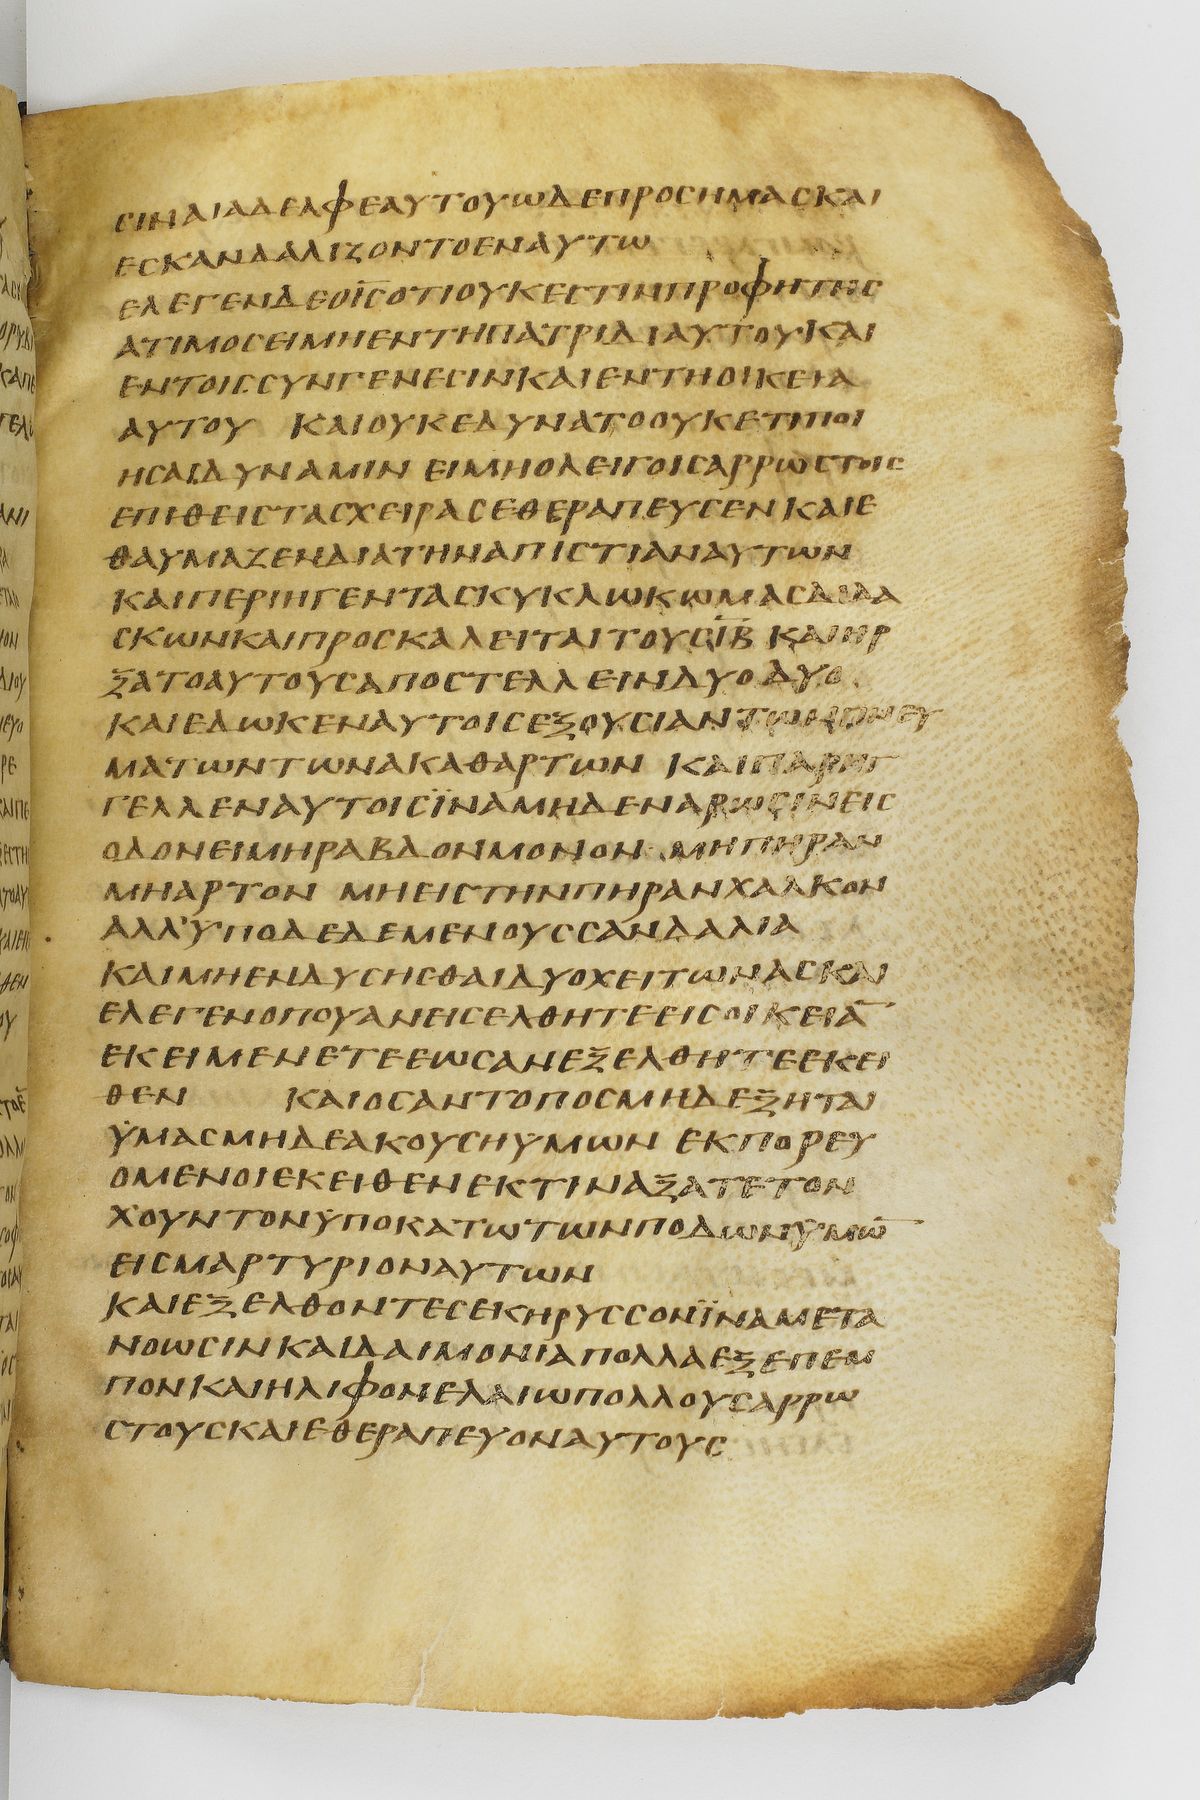 ϹΙΝΑΙΑΔΕΛΦΕΑΥΤΟΥΩΔΕΠΡΟϹΗΜΑϹΚΑΙ
ΕϹΚΑΝΔΑΛΙΖΟΝΤΟΕΝΑΥΤΩ
ΕΛΕΓΕΝΔΕΟΙ̅Ϲ̅ΟΤΙΟΥΚΕϹΤΙΝΠΡΟΦΗΤΗϹ
ΑΤΙΜΟϹΕΙΜΗΕΝΤΗΠΑΤΡΙΔΙΑΥΤΟΥ·ΚΑΙ
ΕΝΤΟΙϹϹΥΝΓΕΝΕϹΙΝΚΑΙΕΝΤΗΟΙΚΕΙΑ
ΑΥΤΟΥ ΚΑΙΟΥΚΕΔΥΝΑΤΟΟΥΚΕΤΙΠΟΙ
ΗϹΑΙΔΥΝΑΜΙΝ ΕΙΜΗΟΛΕΙΓΟΙϹΑΡΡΩϹΤΟΙϹ
ΕΠΙΘΕΙϹΤΑϹΧΕΙΡΑϹΕΘΕΡΑΠΕΥϹΕΝΚΑΙΕ
ΘΑΥΜΑΖΕΝΔΙΑΤΗΝΑΠΙϹΤΙΑΝΑΥΤΩΝ
ΚΑΙΠΕΡΙΗΓΕΝΤΑϹΚΥΚΛΩΚΩΜΑϹΔΙΔΑ
ϹΚΩΝΚΑΙΠΡΟϹΚΑΛΕΙΤΑΙΤΟΥϹΙ̅Β̅ ΚΑΙΗΡ
ΞΑΤΟΑΥΤΟΥϹΑΠΟϹΤΕΛΛΕΙΝΔΥΟΔΥΟ
ΚΑΙΕΔΩΚΕΝΑΥΤΟΙϹΕΞΟΥϹΙΑΝΤΩΝΠΝΕΥ
ΜΑΤΩΝΤΩΝΑΚΑΘΑΡΤΩΝ ΚΑΙΠΑΡΗΓ
ΓΕΛΛΕΝΑΥΤΟΙϹΪΝΑΜΗΔΕΝΑΡΩϹΙΝΕΙϹ
ΟΔΟΝΕΙΜΗΡΑΒΔΟΝΜΟΝΟΝ ΜΗΠΗΡΑΝ
ΜΗΑΡΤΟΝ ΜΗΕΙϹΤΗΝΠΗΡΑΝΧΑΛΚΟΝ
ΑΛΛ'ΥΠΟΔΕΔΕΜΕΝΟΥϹϹΑΝΔΑΛΙΑ
ΚΑΙΜΗΕΝΔΥϹΗϹΘΑΙΔΥΟΧΕΙΤΩΝΑϹΚΑΙ
ΕΛΕΓΕΝΟΠΟΥΑΝΕΙϹΕΛΘΗΤΕΕΙϹΟΙΚΕΙΑ̅
ΕΚΕΙΜΕΝΕΤΕΕΩϹΑΝΕΞΕΛΘΗΤΕΕΚΕΙ
ΘΕΝ ΚΑΙΟϹΑΝΤΟΠΟϹΜΗΔΕΞΗΤΑΙ
ΫΜΑϹΜΗΔΕΑΚΟΥϹΗΥΜΩΝ ΕΚΠΟΡΕΥ
ΟΜΕΝΟΙΕΚΕΙΘΕΝΕΚΤΙΝΑΞΑΤΕΤΟΝ
ΧΟΥΝΤΟΝΫΠΟΚΑΤΩΤΩΝΠΟΔΩΝΫΜΩ̅
ΕΙϹΜΑΡΤΥΡΙΟΝΑΥΤΩΝ
ΚΑΙΕΞΕΛΘΟΝΤΕϹΕΚΗΡΥϹϹΟΝΪΝΑΜΕΤΑ
ΝΟΩϹΙΝΚΑΙΔΑΙΜΟΝΙΑΠΟΛΛΑΕΞΕΠΕΜ
ΠΟΝΚΑΙΗΛΙΦΟΝΕΛΑΙΩΠΟΛΛΟΥϹΑΡΡΩ
ϹΤΟΥϹΚΑΙΕΘΕΡΑΠΕΥΟΝΑΥΤΟΥϹ